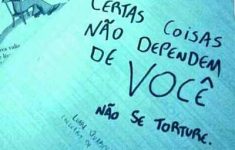 CERTAS COISAS
NÃO DEPENDEM
DE VOCÊ
NÃO SE TORTURE.